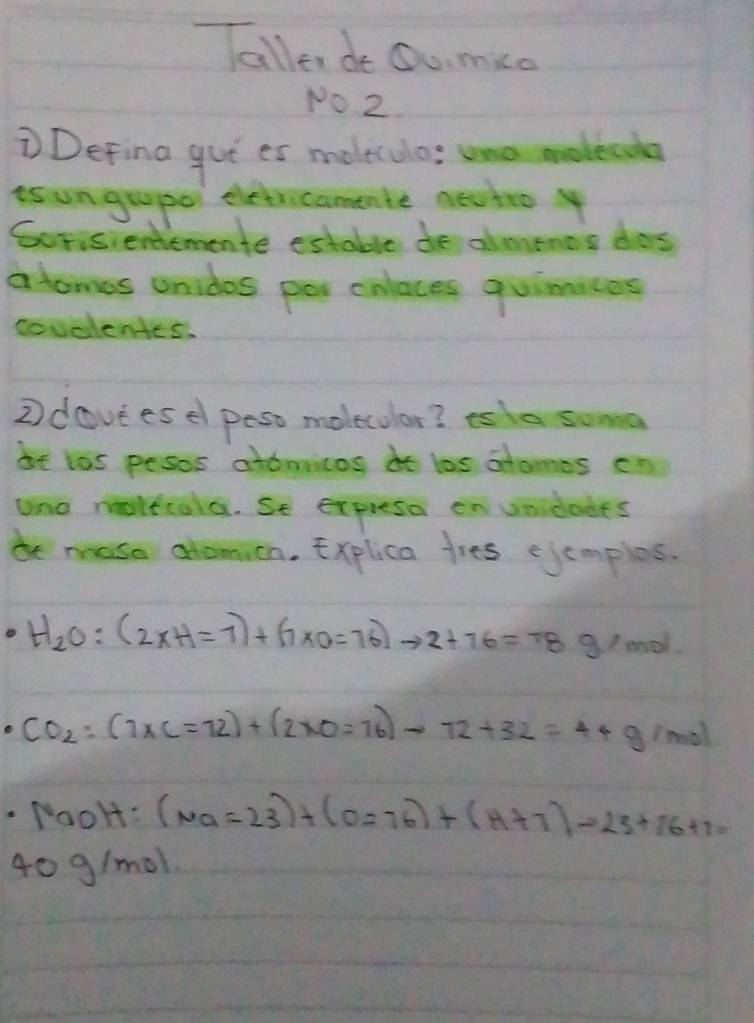 Taller de Quimica
No.2.
1) Defina qué es molécula: una molécula
es un grupo elétricamente neutro y
Sufisientemente estable de almenos dos
atomos unidos por enlaces químicos
covalentes.
2) ¿Qué es el peso molecular? es la suma
de los pesos atómicos de los átomos en
una molécula. Se expresa en unidades
de masa atomica. Explica tres ejemplos.
• H₂O: (2xH=1)+(1xO=16)→2+16=18 g/mol.
• CO₂: (1xC=12)+(2xO=16)→12+32=44 g/mol
• NaOH: (Na=23)+(O=16)+(H+1)→23+16+1=
40 g/mol.